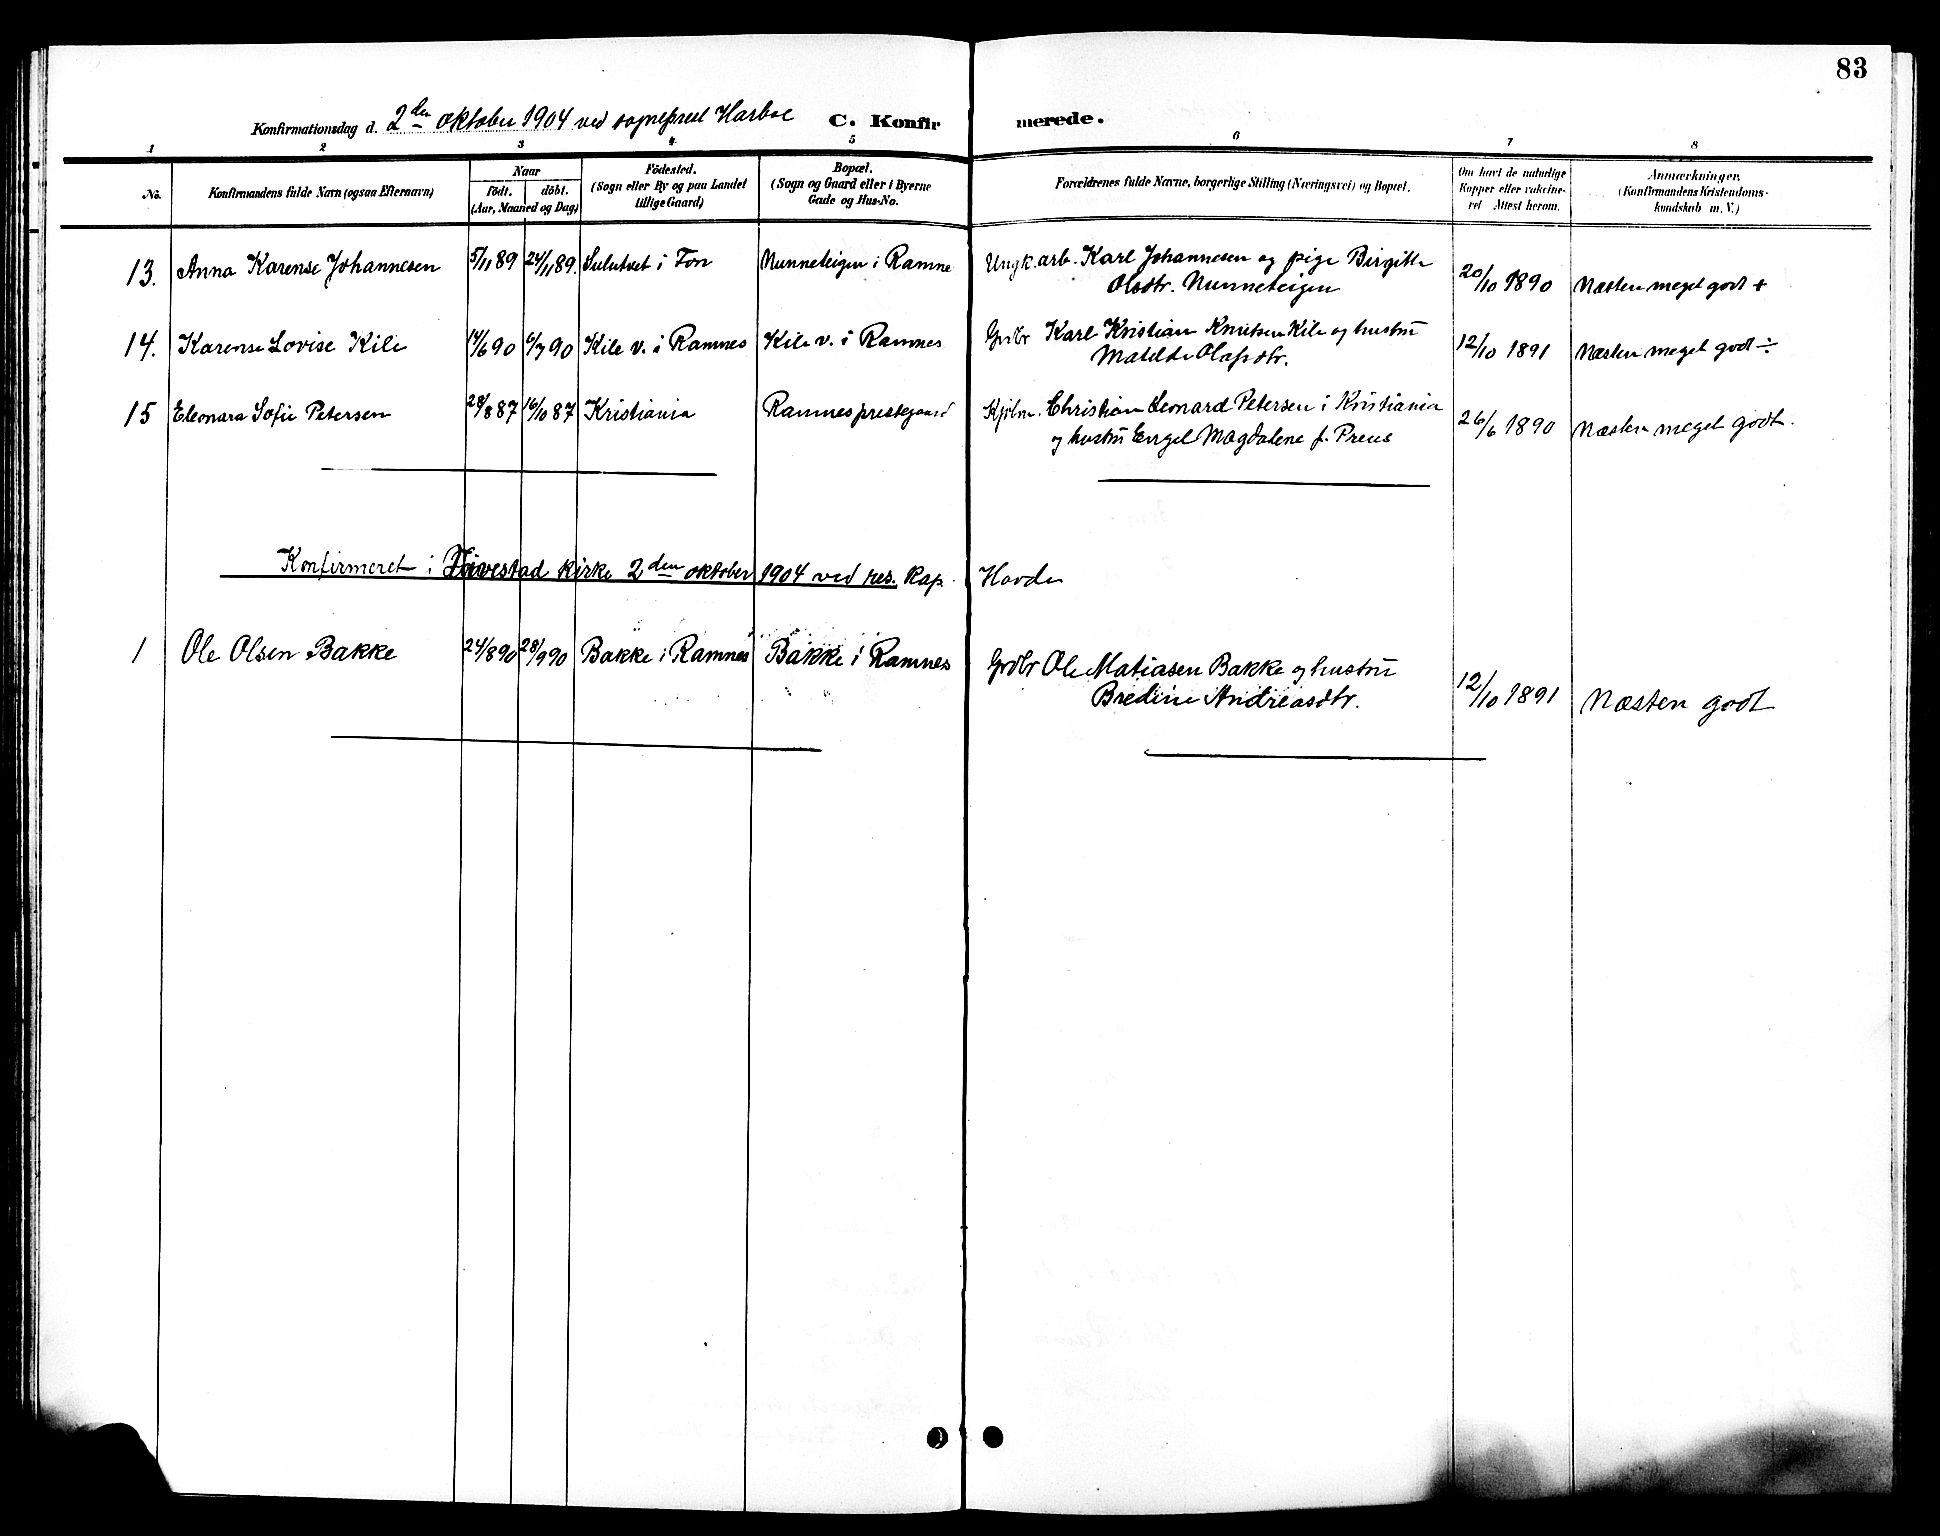 83
Konfirmationsdag d. 2den oktober 1904 ved sogneprest Harboe C. Konfir merede.
1 2 3 4 5 6 7 8
No.
Konfirmandens fulde Navn (ogsaa Efternavn)
Naar
födt. döbt.
(Aar, Maaned og Dag)
Födested.
(Sogn eller By og paa Landet
tillige Gaard)
Bopæl.
(Sogn og Gaard eller i Byerne
Gade og Hus-No.
Forældrenes fulde Navne, borgerlige Stilling (Næringsvei) og Bopæl.
Om havt de naturlige
Kopper eller vakcine-
ret Attest herom.
Anmærkninger,
(Konfirmandens Kristendoms-
kundskab m. V.)
13. Anna Karense Johannesen 5/11 89 24/11 89. i Fon Nunneteigen i Ramne Ungk. arb. Karl Johannesen og pige Birgitte
Olsdtr. Nunneteigen 20/10 1890 Næsten meget godt +
14. Karense Lovise Kile 14/6 90 6/7 90 Kile v. i Ramnes Kile v. i Ramnes Grdbr Karl Kristian Knutsen Kile og hustru
Matilde Olafsdtr. 12/10 1891 Næsten meget godt ÷
15 Eleonara Sofie Petersen 28/8 87 16/10 87 Kristiania Ramnes prestegaard Kjøbm. Christian Leonard Petersen i Kristiania
og hustru Engel Magdalene f. Preus 26/6 1890 Næsten meget godt.
Konfirmeret i Fivestad kirke 2den oktober 1904 ved res. Kap. Hovde
1 Ole Olsen Bakke 24/8 90 28/9 90 Bakke i Ramnes Bakke i Ramnes Grdbr Ole Matiasen Bakke og hustru
Bredine Andreasdtr. 12/10 1891 Næsten godt